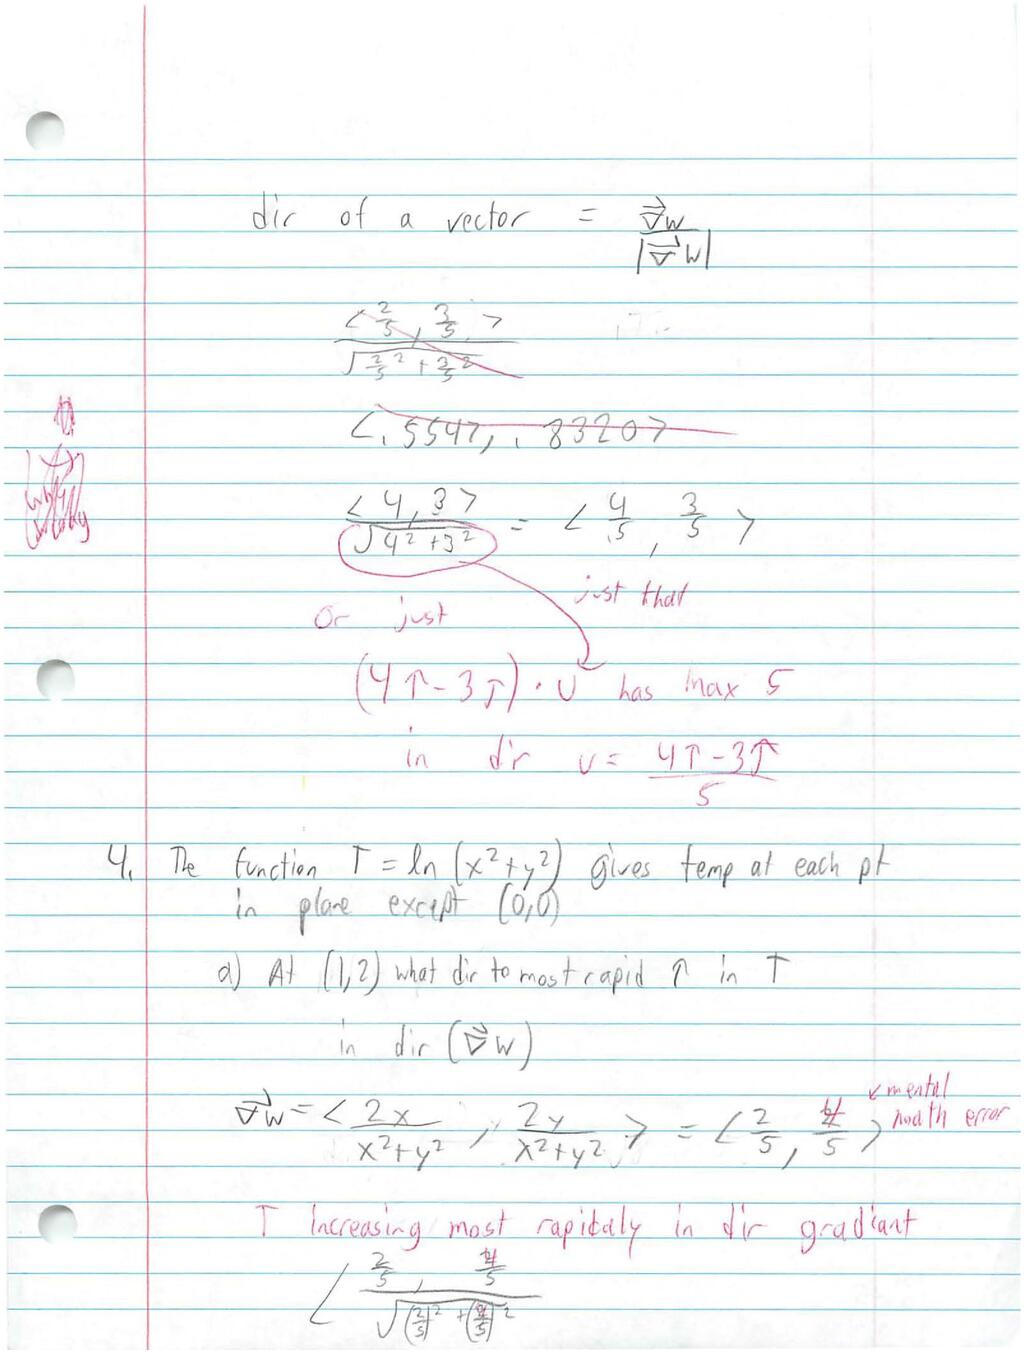 dir of a vector = ∇⃗w / |∇⃗w|
<2/5, 3/5> / √(2/5² + 3/5²)
<.5547, .8320>
<4,3> / √(4²+3²) = <4/5, 3/5>
just that
or just
(4î - 3ĵ) · U has max 5
in dir U = (4î - 3ĵ) / 5
4. The function T = ln (x²+y²) gives temp at each pt
in plane except (0,0)
a) At (1,2) what dir to most rapid ↑ in T
in dir (∇⃗w)
∇⃗w = <2x / (x²+y²), 2y / (x²+y²)> = <2/5, 4/5>
↙ mental
math error
T increasing most rapidaly in dir gradiant
< (2/5, 4/5) / √((2/5)² + (4/5)²)